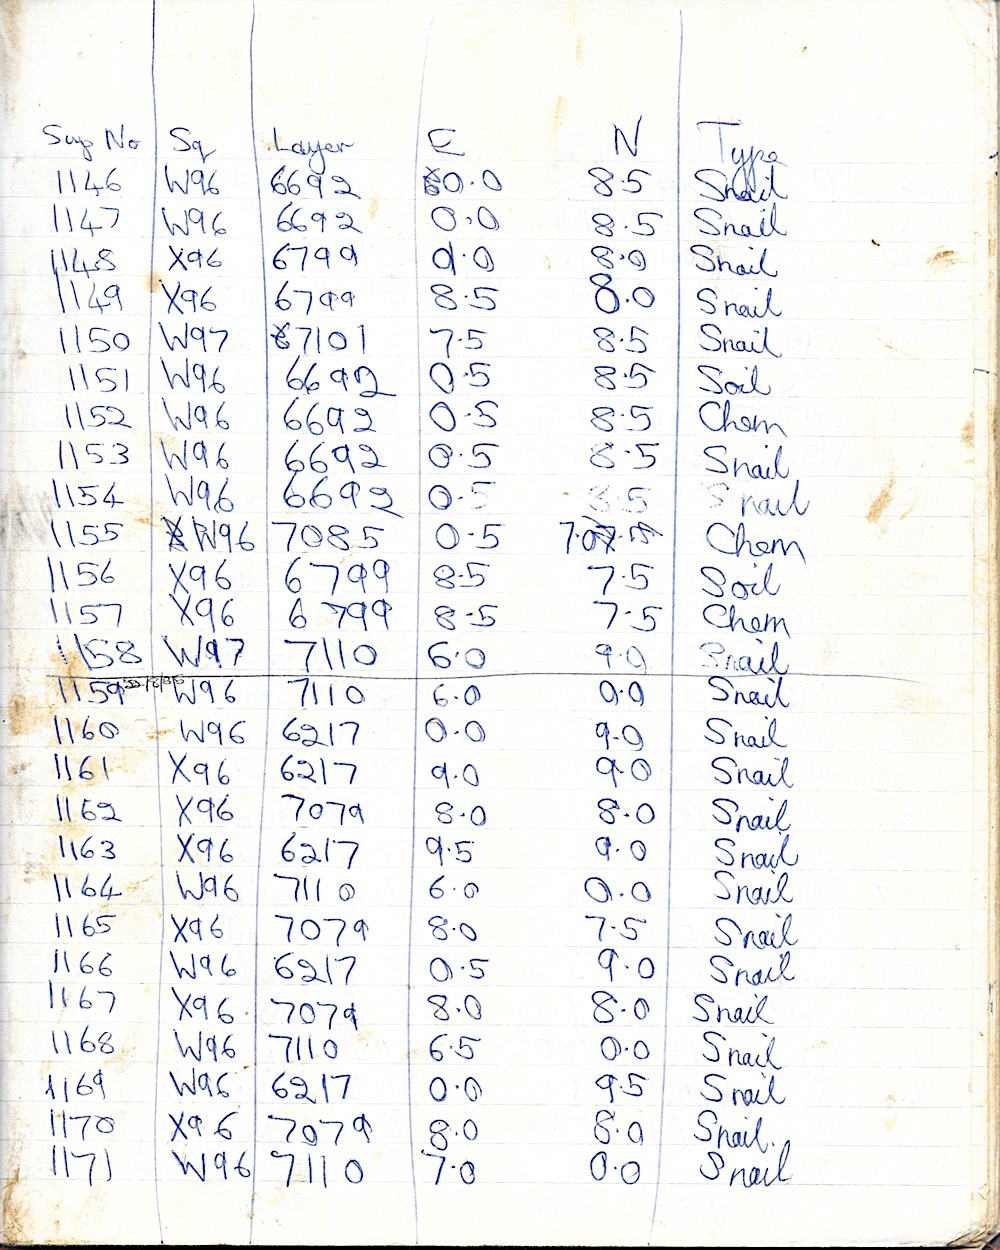 Smp No Sq Layer E N Type
1146 W96 6692 0.0 8.5 Snail
1147 W96 6692 0.0 8.5 Snail
1148 X96 6799 9.0 8.0 Snail
1149 X96 6799 8.5 8.0 Snail
1150 W97 7101 7.5 8.5 Snail
1151 W96 6692 0.5 8.5 Soil
1152 W96 6692 0.5 8.5 Chem
1153 W96 6692 0.5 8.5 Snail
1154 W96 6692 0.5 8.5 Snail
1155 W96 7085 0.5 Chem
1156 X96 6799 8.5 7.5 Soil
1157 X96 6799 8.5 7.5 Chem
1158 W97 7110 6.0 9.0 Snail
1159 W96 7110 6.0 0.0 Snail
1160 W96 6217 0.0 9.0 Snail
1161 X96 6217 9.0 9.0 Snail
1162 X96 7079 8.0 8.0 Snail
1163 X96 6217 9.5 9.0 Snail
1164 W96 7110 6.0 0.0 Snail
1165 X96 7079 8.0 7.5 Snail
1166 W96 6217 0.5 9.0 Snail
1167 X96 7079 8.0 8.0 Snail
1168 W96 7110 6.5 0.0 Snail
1169 W96 6217 0.0 9.5 Snail
1170 X96 7079 8.0 8.0 Snail.
1171 W96 7110 7.0 0.0 Snail